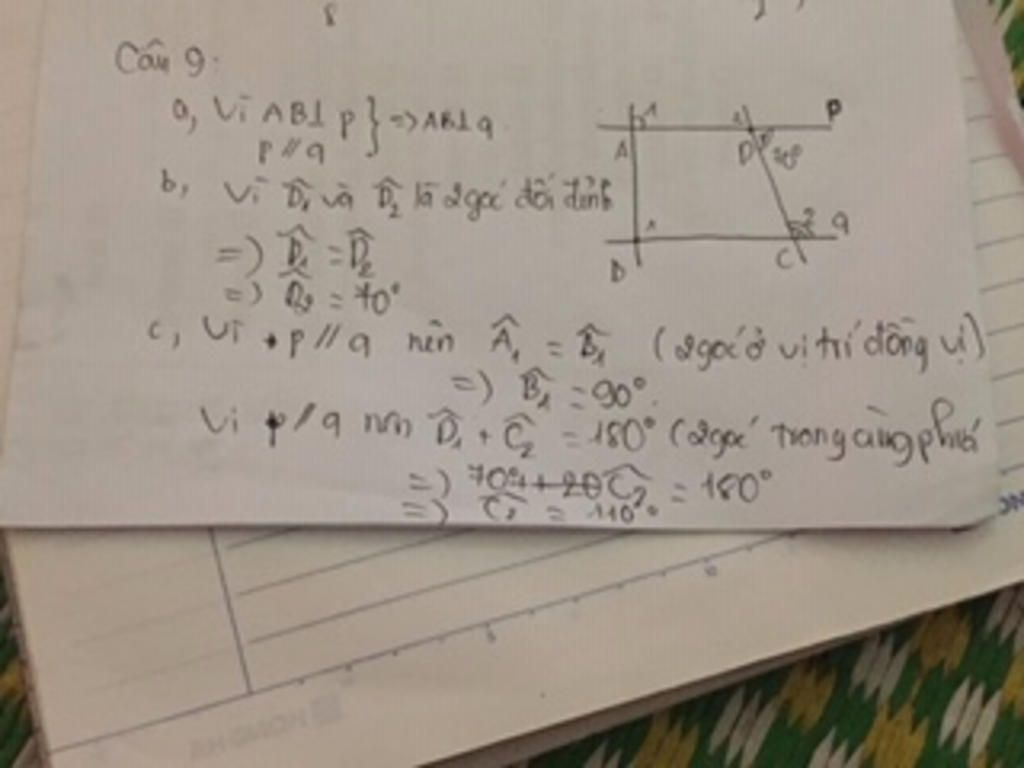 Câu 9:
a, Vì AB⊥ p } => AB⊥ q
p // q
b, Vì D̂₁ và D̂₂ là 2 góc đối đỉnh
=) D̂₁ = D̂₂
=) D̂₂ = 70°
c, Vì p // q nên Â₁ = B̂₁ (2 góc ở vị trí đồng vị)
=) B̂₁ = 90°.
Vì p // q nên D̂₁ + Ĉ₂ = 180° (2 góc trong cùng phía
=) 70° + Ĉ₂ = 180°
=) Ĉ₂ = 110°.
A 1 D 70° p
B 1 C 2 q
10
HONG HA